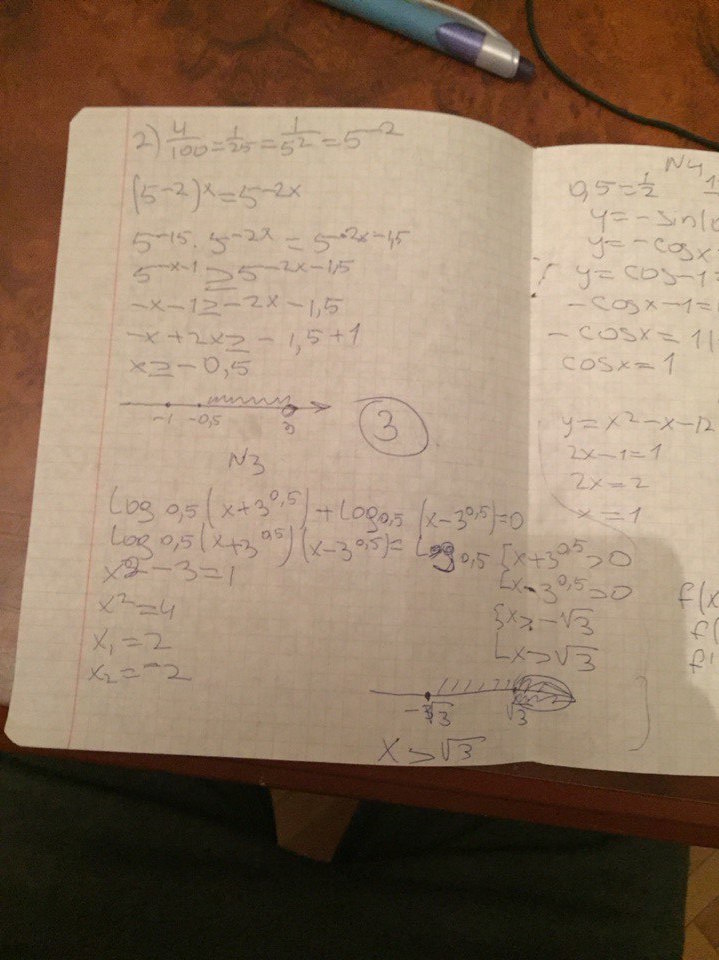 2) 4/100 = 1/25 = 1/5² = 5⁻²
(5⁻²)ˣ = 5⁻²ˣ
5⁻¹⁵ · 5⁻²ˣ = 5⁻²ˣ⁻¹,⁵
5⁻ˣ⁻¹ ≥ 5⁻²ˣ⁻¹,⁵
-x-1 ≥ -2x - 1,5
-x+2x ≥ -1,5+1
x ≥ -0,5
-1 -0,5 3
3
N3
Log 0,5 (x+3^0,5) + Log 0,5 (x-3^0,5) = 0
Log 0,5 (x+3^0,5)(x-3^0,5) = Log 0,5
x² - 3 = 1
x² = 4
x₁ = 2
x₂ = -2
[x+3^0,5 > 0
[x-3^0,5 > 0
{x > -√3
[x > √3
-√3 √3
x > √3
N4
0,5 = 1/2
y = -sin(
y = -cosx
y = cos-1
-cosx-1=
-cosx = 1
cosx = 1
y = x² - x - 12
2x - 1 = 1
2x = 2
x = 1
f(x
f(
f'